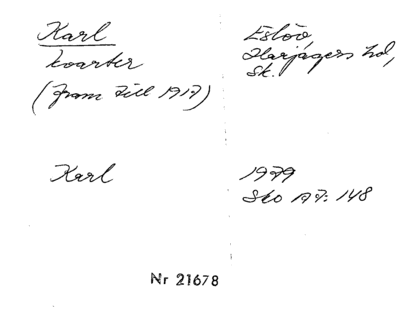 Karl
kvarter
(fram till 1917)
Eslöv,
Harjagers hd,
Sk.
Karl
1979
Sko A7: 148
Nr 21678